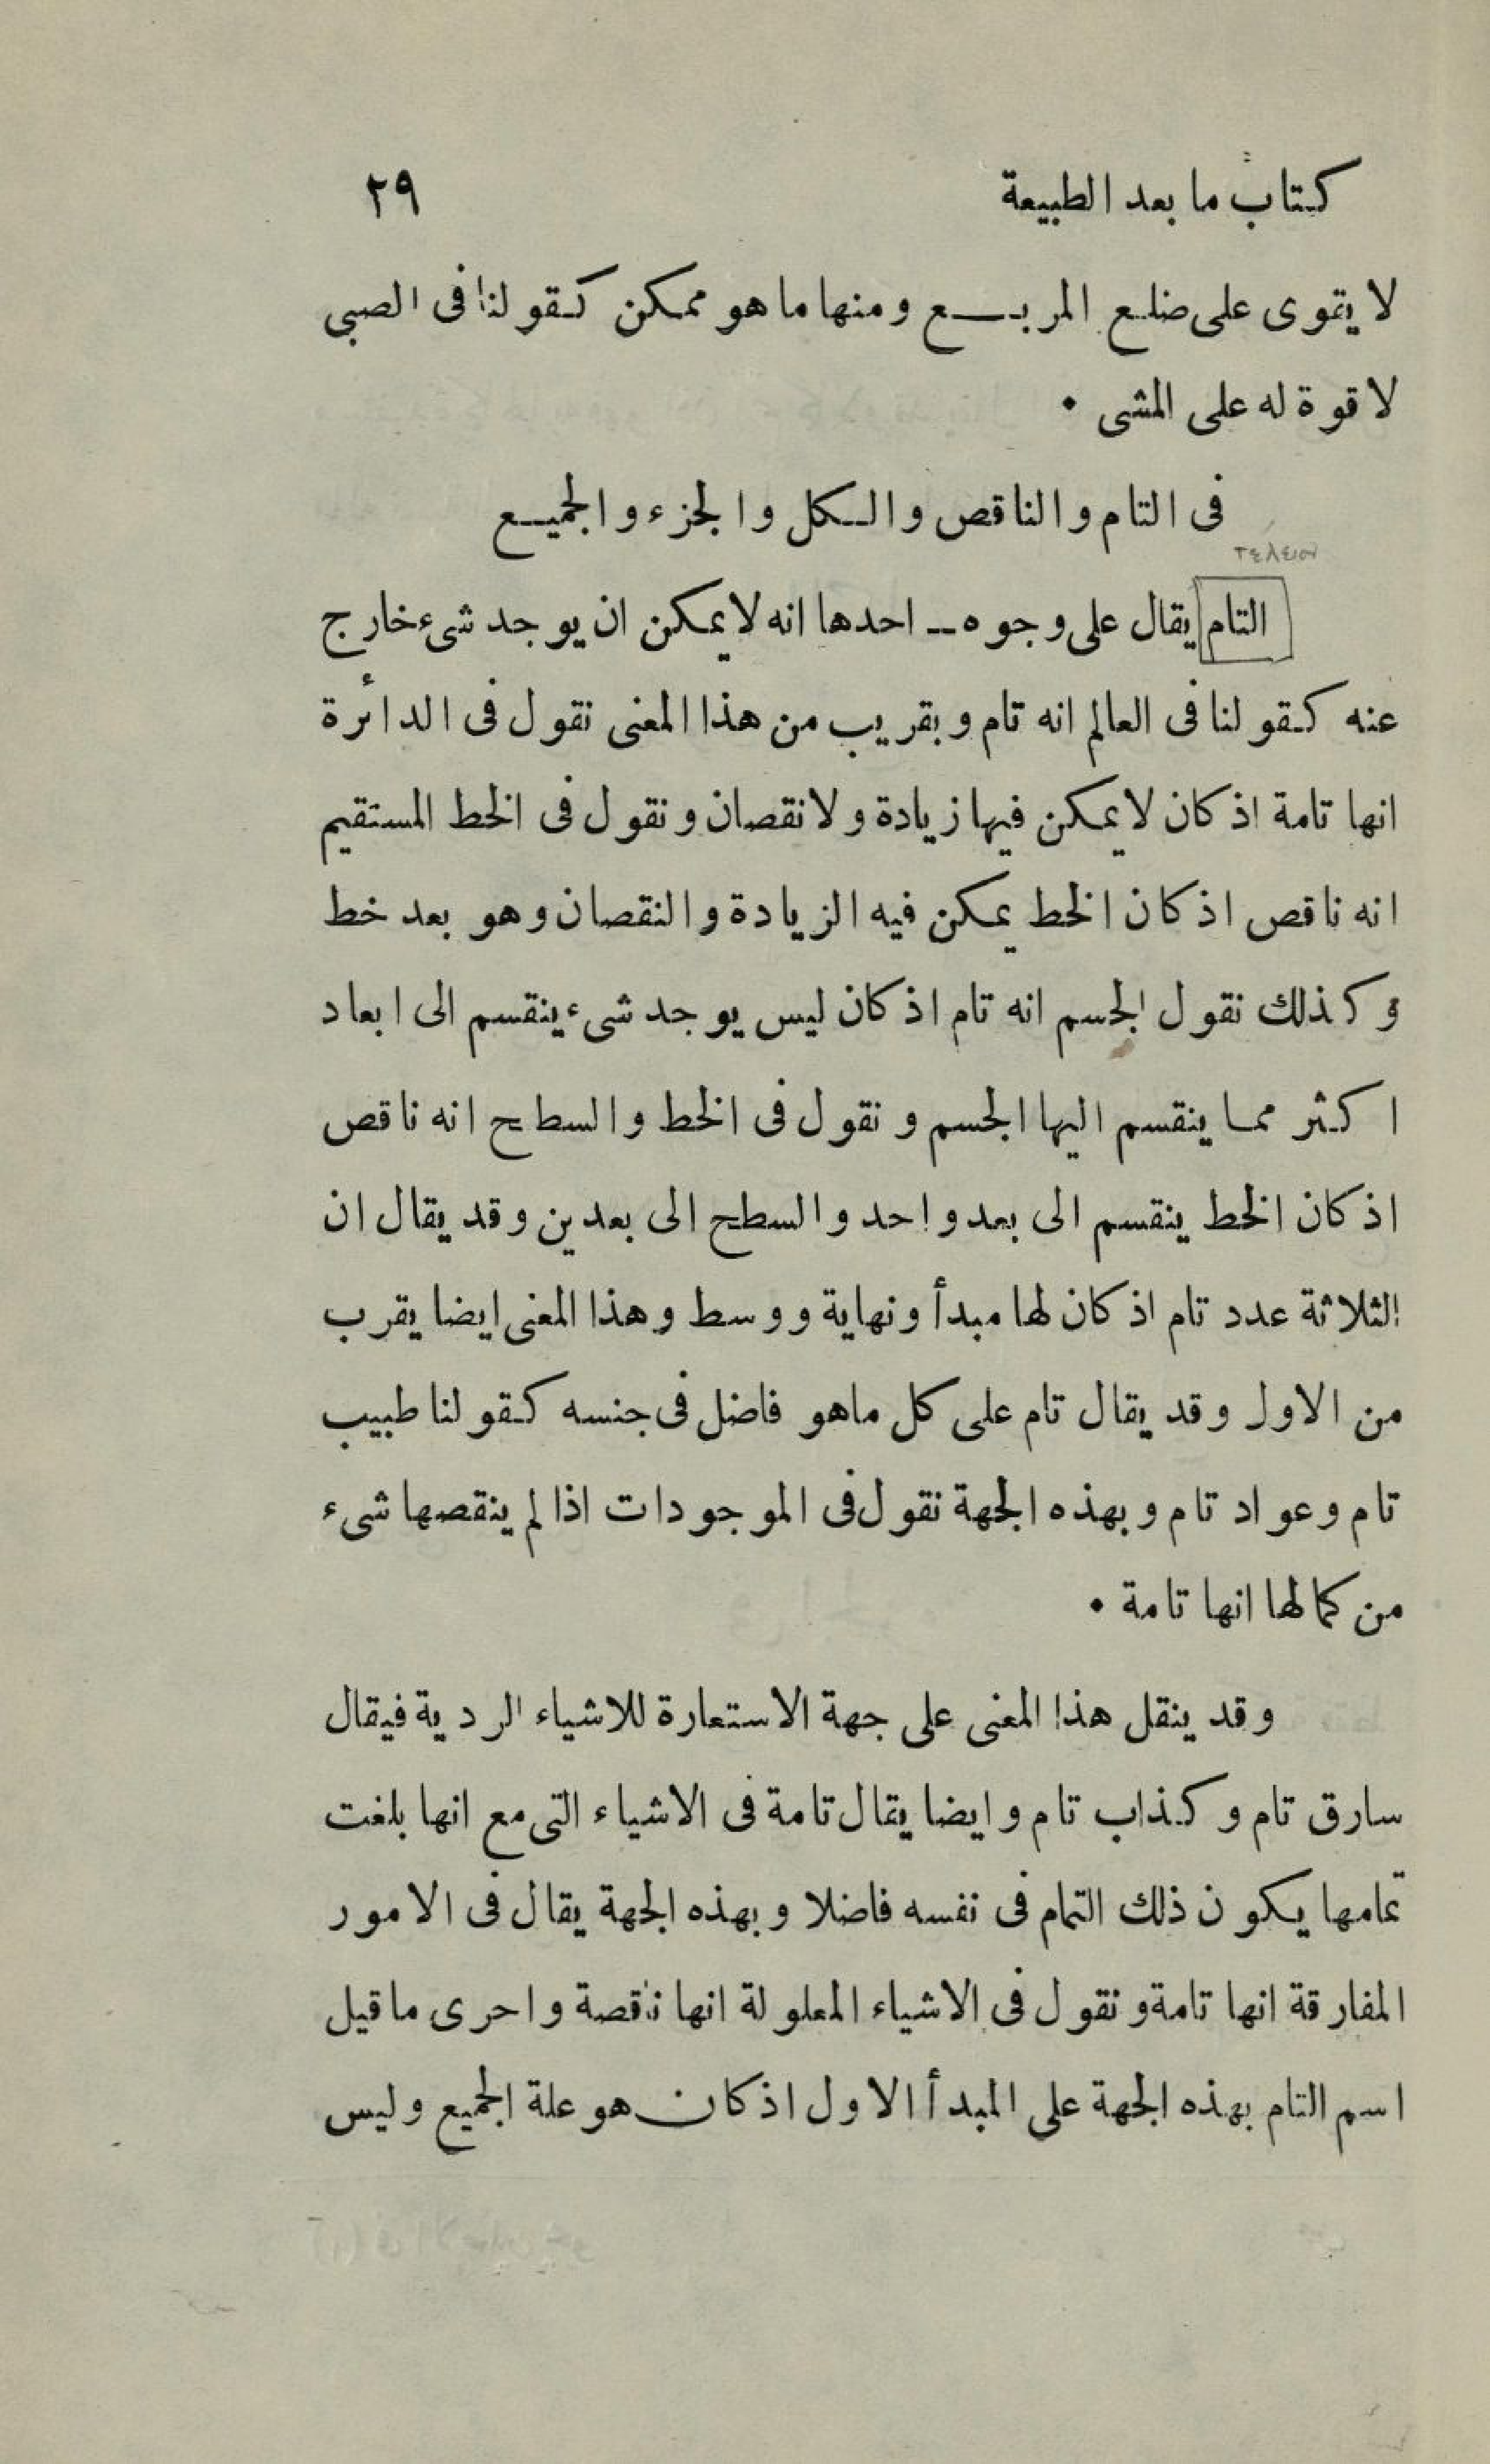 كتاب ما بعد الطبيعة ٢٩
لا يقوى على ضلع المربع ومنها ما هو ممكن كقولنا فى الصبى
لا قوة له على المشى ٠
فى التام والناقص والكل والجزء والجميع
τέλειον
التام يقال على وجوه ــ احدها انه لا يمكن ان يوجد شىء خارج
عنه كقولنا فى العالم انه تام وبقريب من هذا المعنى نقول فى الدائرة
انها تامة اذ كان لا يمكن فيها زيادة ولا نقصان ونقول فى الخط المستقيم
انه ناقص اذ كان الخط يمكن فيه الزيادة والنقصان وهو بعد خط
وكذلك نقول الجسم انه تام اذ كان ليس يوجد شىء ينقسم الى ابعاد
اكثر مما ينقسم اليها الجسم ونقول فى الخط والسطح انه ناقص
اذ كان الخط ينقسم الى بعد واحد والسطح الى بعدين وقد يقال ان
الثلاثة عدد تام اذ كان لها مبدأ ونهاية ووسط وهذا المعنى ايضا يقرب
من الاول وقد يقال تام على كل ماهو فاضل فى جنسه كقولنا طبيب
تام وعواد تام وبهذه الجهة نقول فى الموجودات اذا لم ينقصها شىء
من كمالها انها تامة ٠
وقد ينقل هذا المعنى على جهة الاستعارة للاشياء الردية فيقال
سارق تام وكذاب تام وايضا يقال تامة فى الاشياء التى مع انها بلغت
تمامها يكون ذلك التمام فى نفسه فاضلا وبهذه الجهة يقال فى الامور
المفارقة انها تامة ونقول فى الاشياء المعلولة انها ناقصة واحرى ما قيل
اسم التام بهذه الجهة على المبدأ الاول اذ كان هو علة الجميع وليس